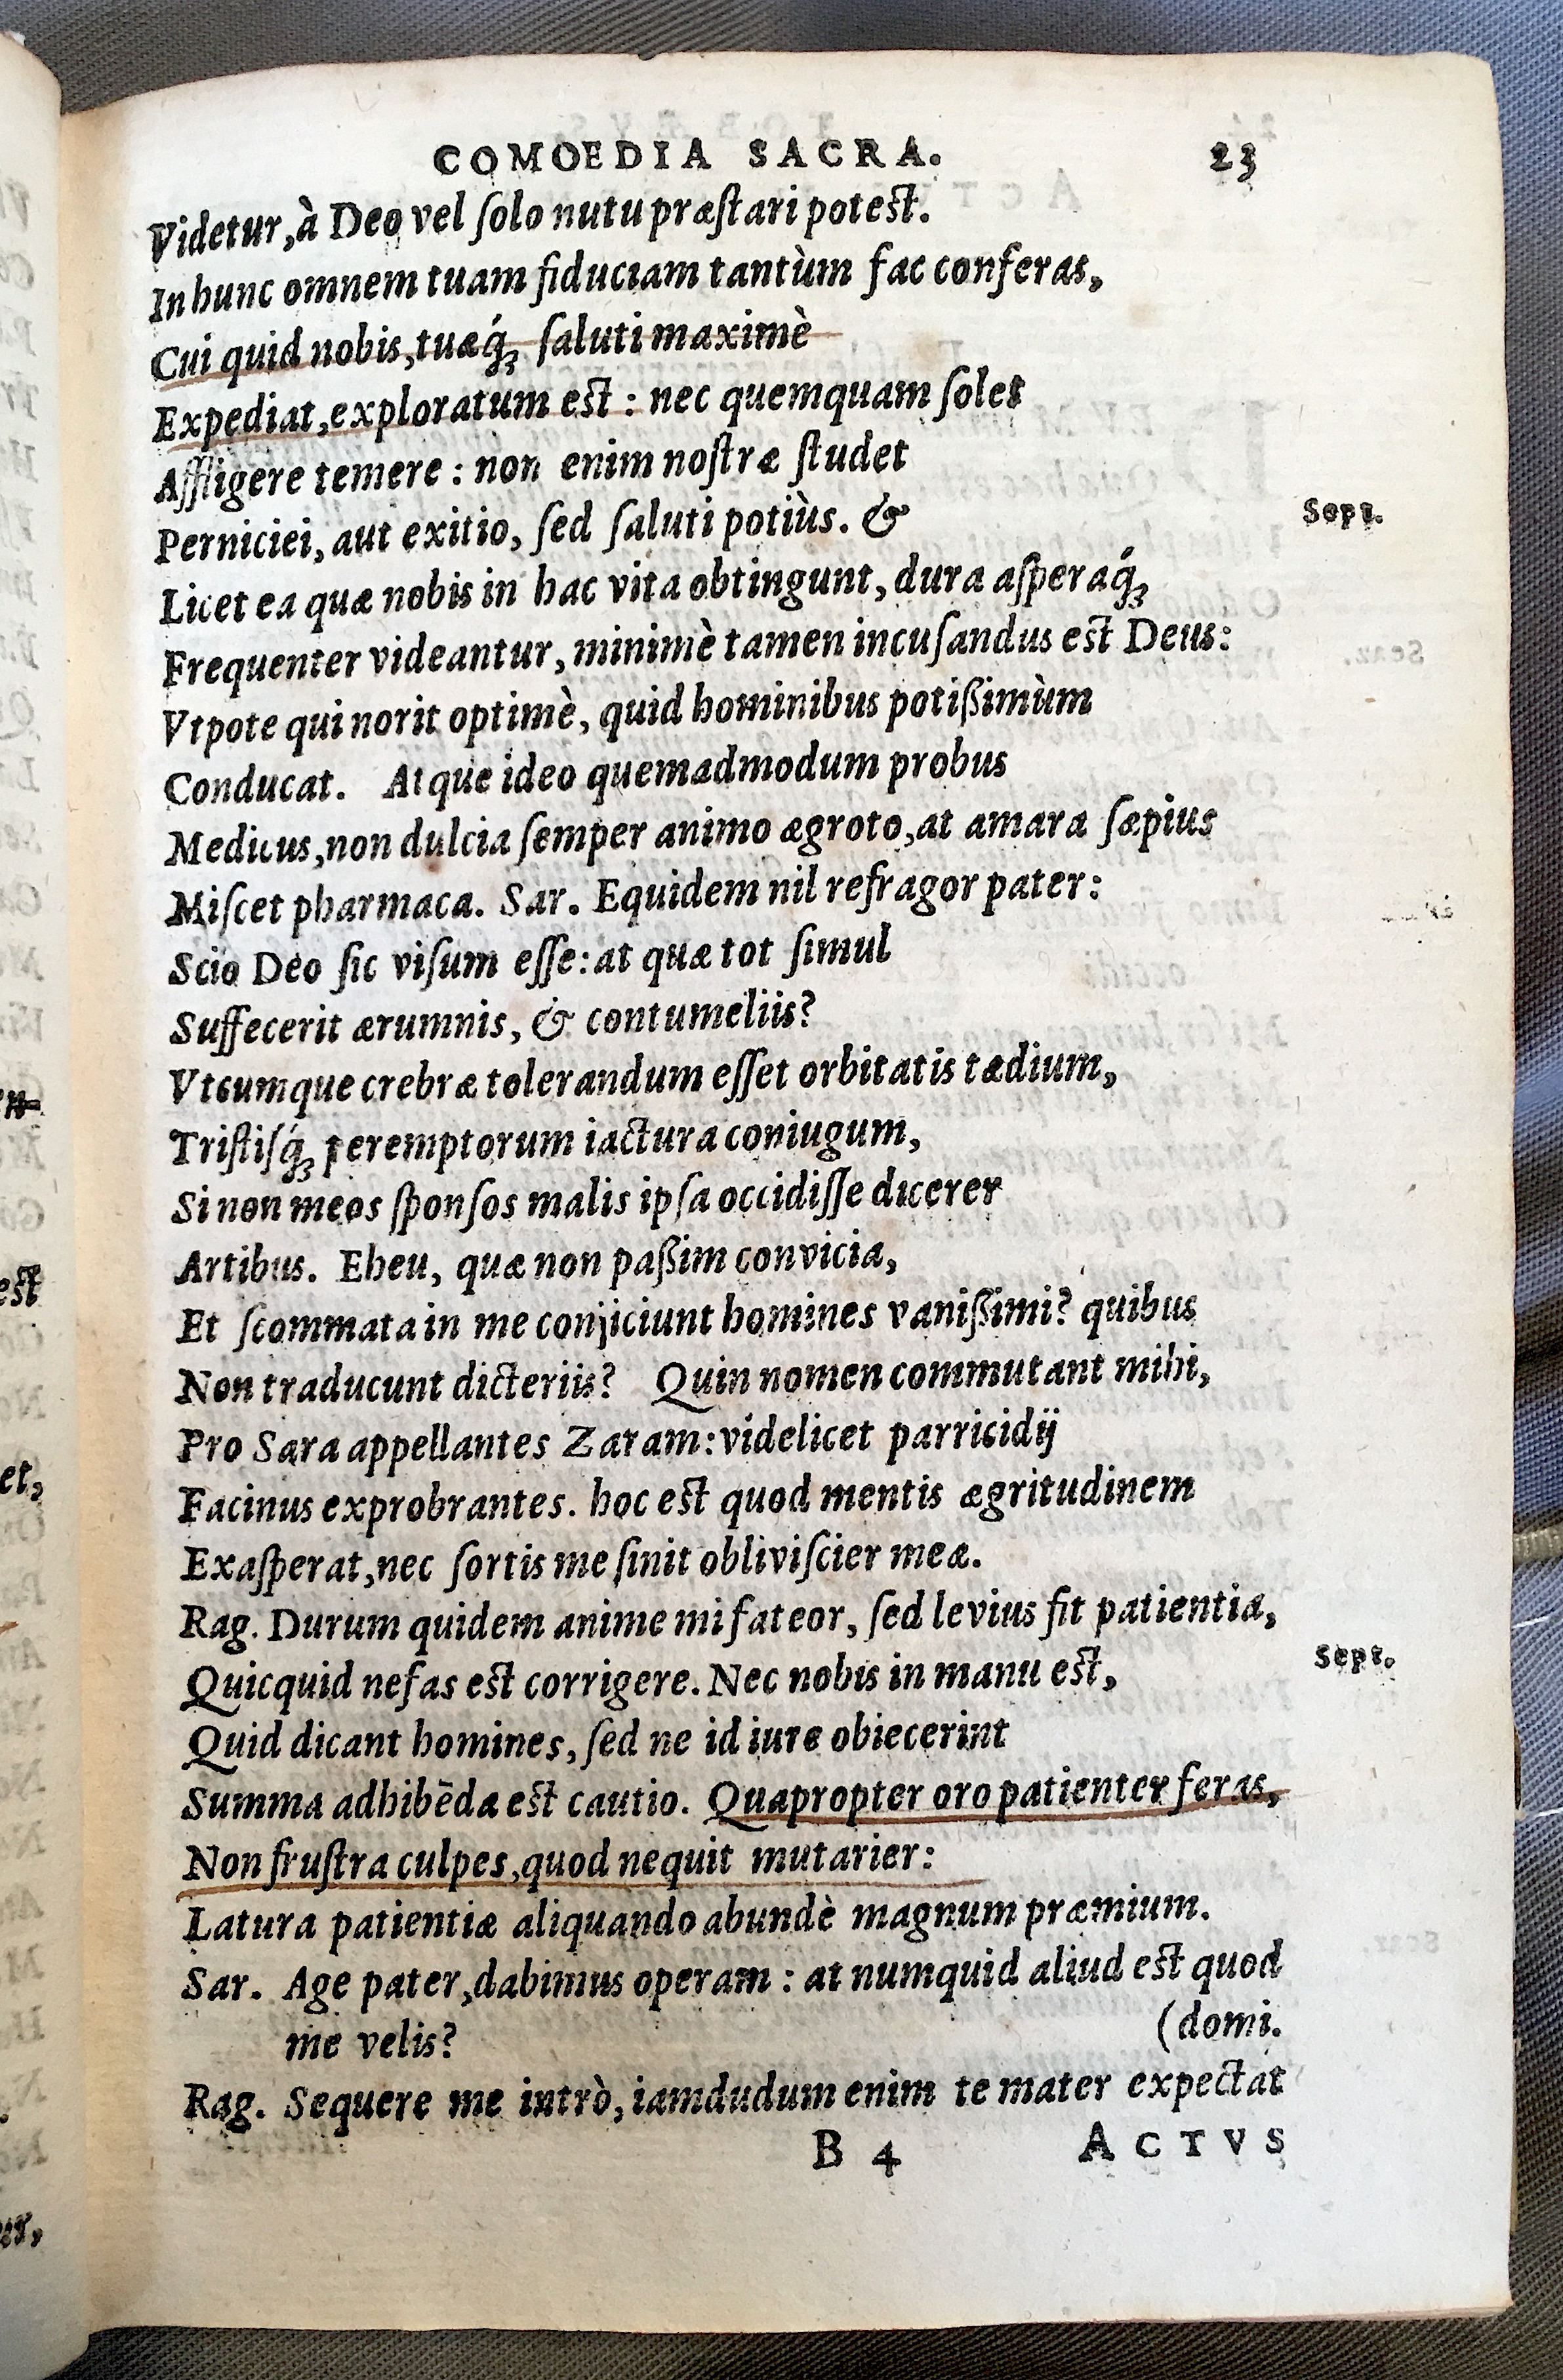 COMOEDIA SACRA. 23
Videtur, à Deo vel ſolo nutu præſtari potest.
In hunc omnem tuam fiduciam tantùm fac conferas,
Cui quid nobis, tuæq́ꝫ ſaluti maximè
Expediat, exploratum est : nec quemquam ſolet
Affligere temere : non enim noſtræ ſtudet
Perniciei, aut exitio, ſed ſaluti potiùs. & Sept.
Licet ea quæ nobis in hac vita obtingunt, dura aſperaq́ꝫ
Frequenter videantur, minimè tamen incuſandus est Deus:
Vtpote qui norit optimè, quid hominibus potißimùm
Conducat. Atque ideo quemadmodum probus
Medicus, non dulcia ſemper animo ægroto, at amara ſæpius
Miſcet pharmaca. Sar. Equidem nil refragor pater:
Scio Deo ſic viſum eſſe: at quæ tot ſimul
Suffecerit ærumnis, & contumeliis?
Vtcumque crebræ tolerandum eſſet orbitatis tædium,
Triſtiſq́ꝫ peremptorum iactura coniugum,
Si non meos ſponſos malis ipſa occidiſſe dicerer
Artibus. Eheu, quæ non paßim convicia,
Et ſcommata in me conjiciunt homines vanißimi? quibus
Non traducunt dicteriis? Quin nomen commutant mihi,
Pro Sara appellantes Zaram: videlicet parricidij
Facinus exprobrantes. hoc est quod mentis ægritudinem
Exaſperat, nec ſortis me ſinit obliviſcier meæ.
Rag. Durum quidem anime mi fateor, ſed levius fit patientia,
Quicquid nefas est corrigere. Nec nobis in manu est, Sept.
Quid dicant homines, ſed ne id iure obiecerint
Summa adhibēda est cautio. Quapropter oro patienter feras,
Non fruſtra culpes, quod nequit mutarier:
Latura patientiæ aliquando abundè magnum præmium.
Sar. Age pater, dabimus operam : at numquid aliud est quod
me velis? (domi.
Rag. Sequere me intrò, iamdudum enim te mater expectat
B 4 ACTVS